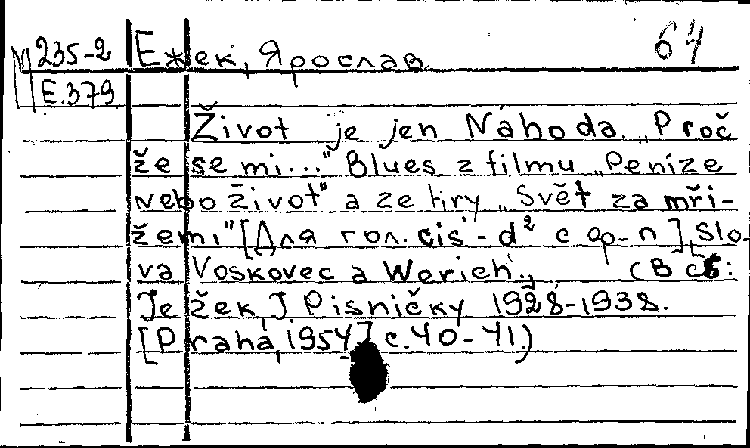 М 235-2 Ежек, Ярослав 64
Е.379
Život je jen Náhoda. „Proč
že se mi..." Blues z filmu „Peníze
nebo život" a ze hry „Svět za mři-
žemi" [Для гол. cis' - d² с ф-п], Slo-
va Voskovec a Werich. (В сб:
Ježek, J. Pisničky 1928-1938.
[Praha, 1954] с.40-41.)